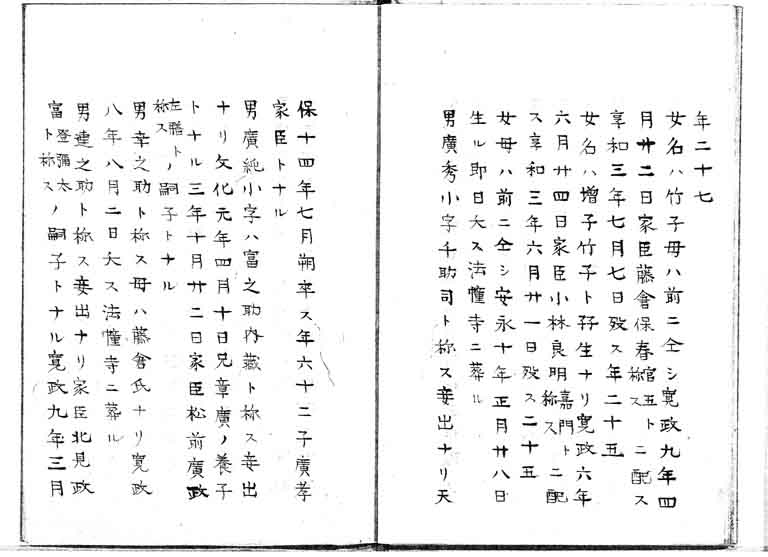 年二十七
女名ハ竹子母ハ前ニ仝シ寛政九年四
月廿二日家臣藤倉保春官五ト称スニ配ス
享和三年七月七日歿ス年二十五
女名ハ増子竹子ト孖生ナリ寛政六年
六月廿四日家臣小林良明嘉門ト称スニ配
ス享和三年六月廿一日歿ス二十五
女母ハ前ニ仝シ安永十年正月廿八日
生ル即日夭ス法幢寺ニ葬ル
男廣秀小字千助司ト称ス妾出ナリ天
保十四年七月朔卒ス年六十二子廣孝
家臣トナル
男廣純小字ハ富之助内藏ト称ス妾出
ナリ文化元年四月十日兄章廣ノ養子
トナル三年十月廿二日家臣松前廣政
左膳ト称スノ嗣子トナル
男幸之助ト称ス母ハ藤倉氏ナリ寛政
八年八月二日夭ス法幢寺ニ葬ル
男連之助ト称ス妾出ナリ家臣北見政
富登彌太ト称スノ嗣子トナル寛政九年三月